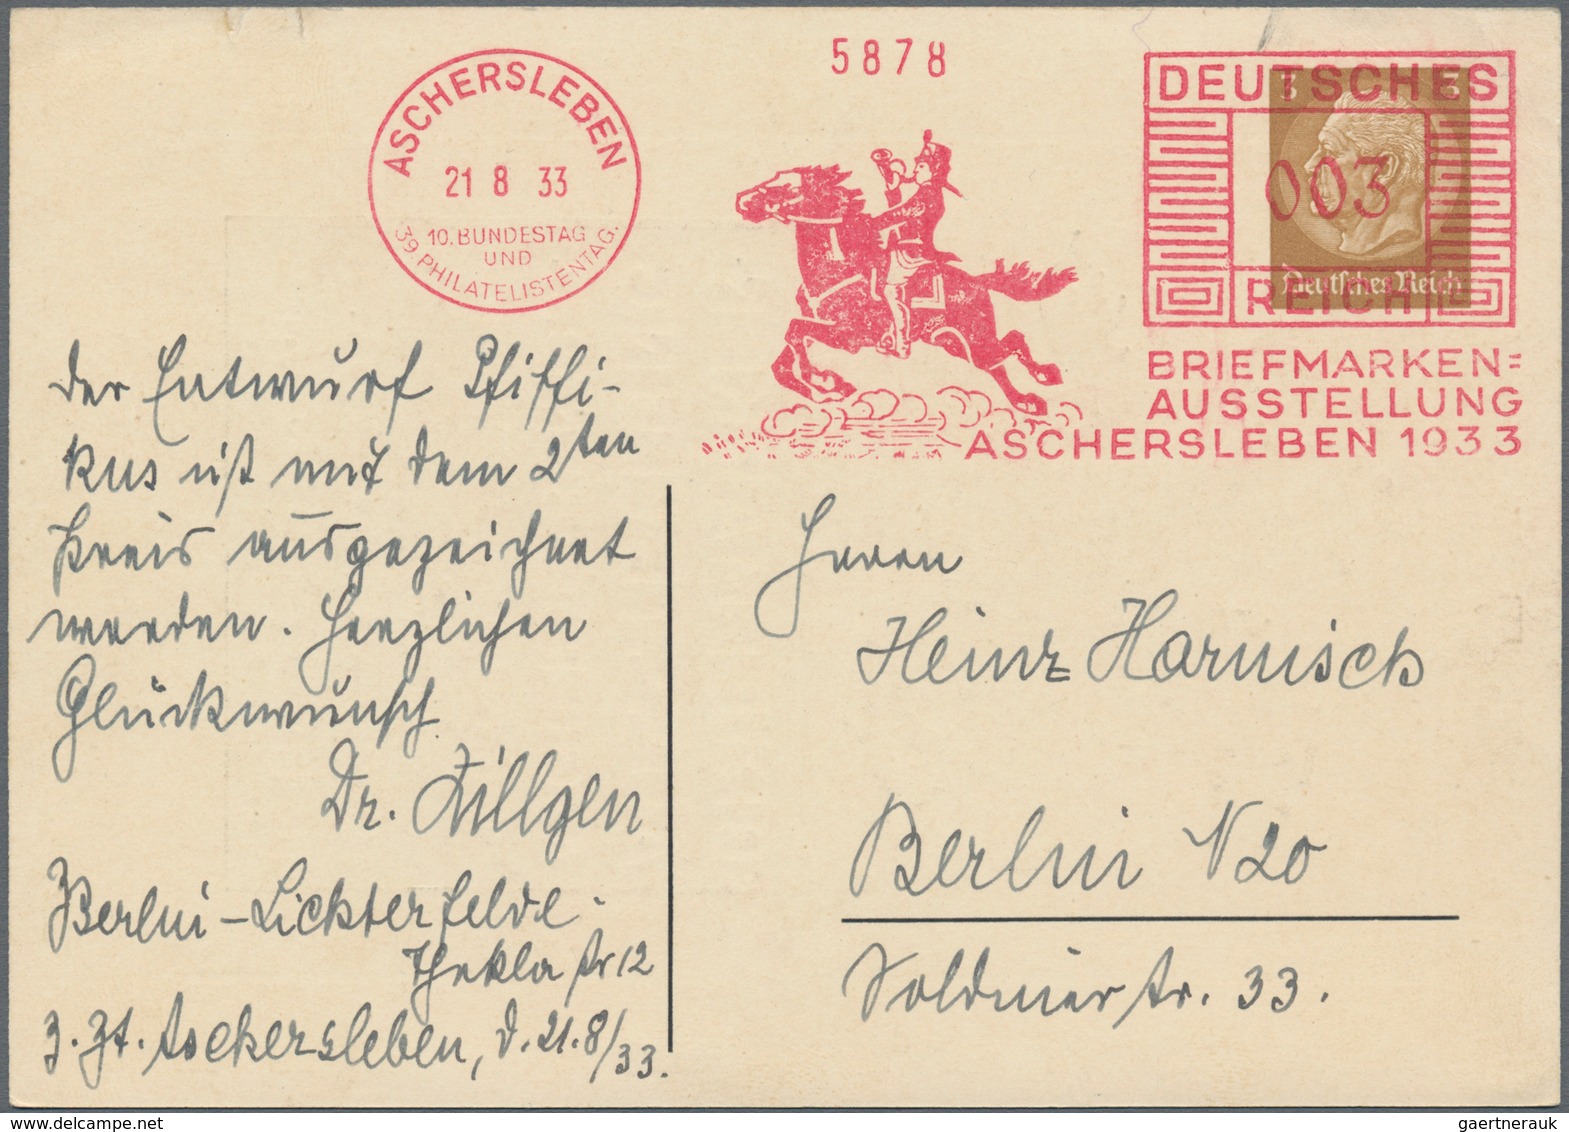 5878
ASCHERSLEBEN
21 8 33
10. BUNDESTAG
UND
39. PHILATELISTENTAG.
DEUTSCHES
3 3
003
Deutsches Reich
REICH
BRIEFMARKEN=
AUSSTELLUNG
ASCHERSLEBEN 1933
Der Entwurf Pfiffi-
kus ist mit dem 2ten
Preis ausgezeichnet
worden. Herzlichen
Glückwunsch
Dr.
Berlin-Lichterfelde.
Theklastr 12
z. Zt. Aschersleben, d. 21.8/33.
Herrn
Heinz Harnisch
Berlin N20
Soldinerstr. 33.
gaertnerauk